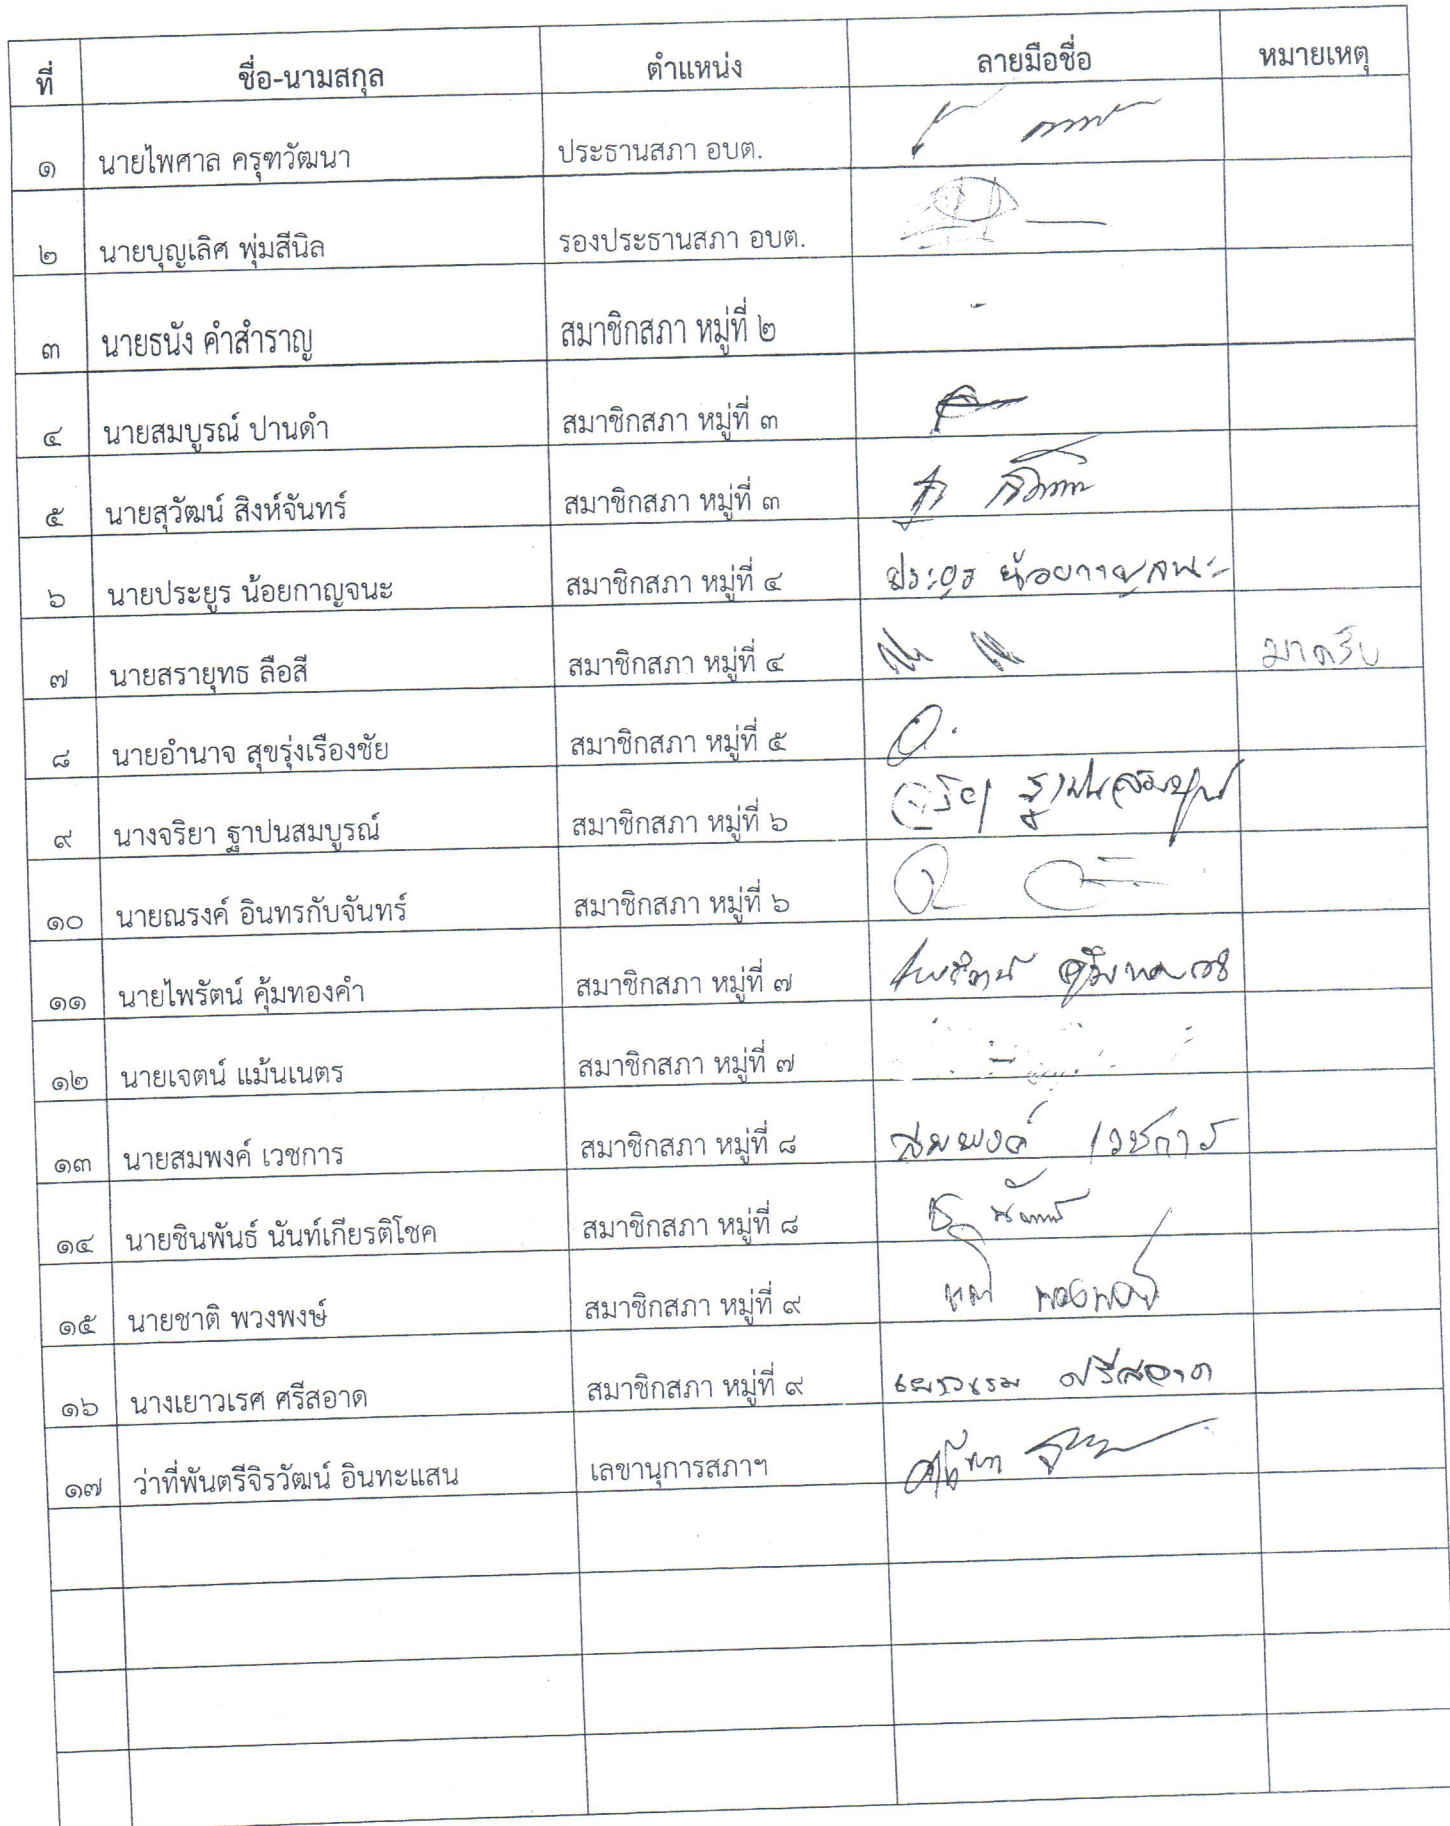 ที่ ชื่อ-นามสกุล ตำแหน่ง ลายมือชื่อ หมายเหตุ
๑ นายไพศาล ครุฑวัฒนา ประธานสภา อบต.
๒ นายบุญเลิศ พุ่มสีนิล รองประธานสภา อบต.
๓ นายธนัง คำสำราญ สมาชิกสภา หมู่ที่ ๒ -
๔ นายสมบูรณ์ ปานดำ สมาชิกสภา หมู่ที่ ๓
๕ นายสุวัฒน์ สิงห์จันทร์ สมาชิกสภา หมู่ที่ ๓
๖ นายประยูร น้อยกาญจนะ สมาชิกสภา หมู่ที่ ๔ ประยูร น้อยกาญจนะ
๗ นายสรายุทธ ลือสี สมาชิกสภา หมู่ที่ ๔ มาครับ
๘ นายอำนาจ สุขรุ่งเรืองชัย สมาชิกสภา หมู่ที่ ๕
๙ นางจริยา ฐาปนสมบูรณ์ สมาชิกสภา หมู่ที่ ๖ จริยา ฐาปนสมบูรณ์
๑๐ นายณรงค์ อินทรกับจันทร์ สมาชิกสภา หมู่ที่ ๖
๑๑ นายไพรัตน์ คุ้มทองคำ สมาชิกสภา หมู่ที่ ๗ ไพรัตน์
๑๒ นายเจตน์ แม้นเนตร สมาชิกสภา หมู่ที่ ๗
๑๓ นายสมพงค์ เวชการ สมาชิกสภา หมู่ที่ ๘ สมพงค์ เวชการ
๑๔ นายชินพันธ์ นันท์เกียรติโชค สมาชิกสภา หมู่ที่ ๘
๑๕ นายชาติ พวงพงษ์ สมาชิกสภา หมู่ที่ ๙ ชาติ พวงพงษ์
๑๖ นางเยาวเรศ ศรีสอาด สมาชิกสภา หมู่ที่ ๙ เยาวเรศ ศรีสอาด
๑๗ ว่าที่พันตรีจิรวัฒน์ อินทะแสน เลขานุการสภาฯ